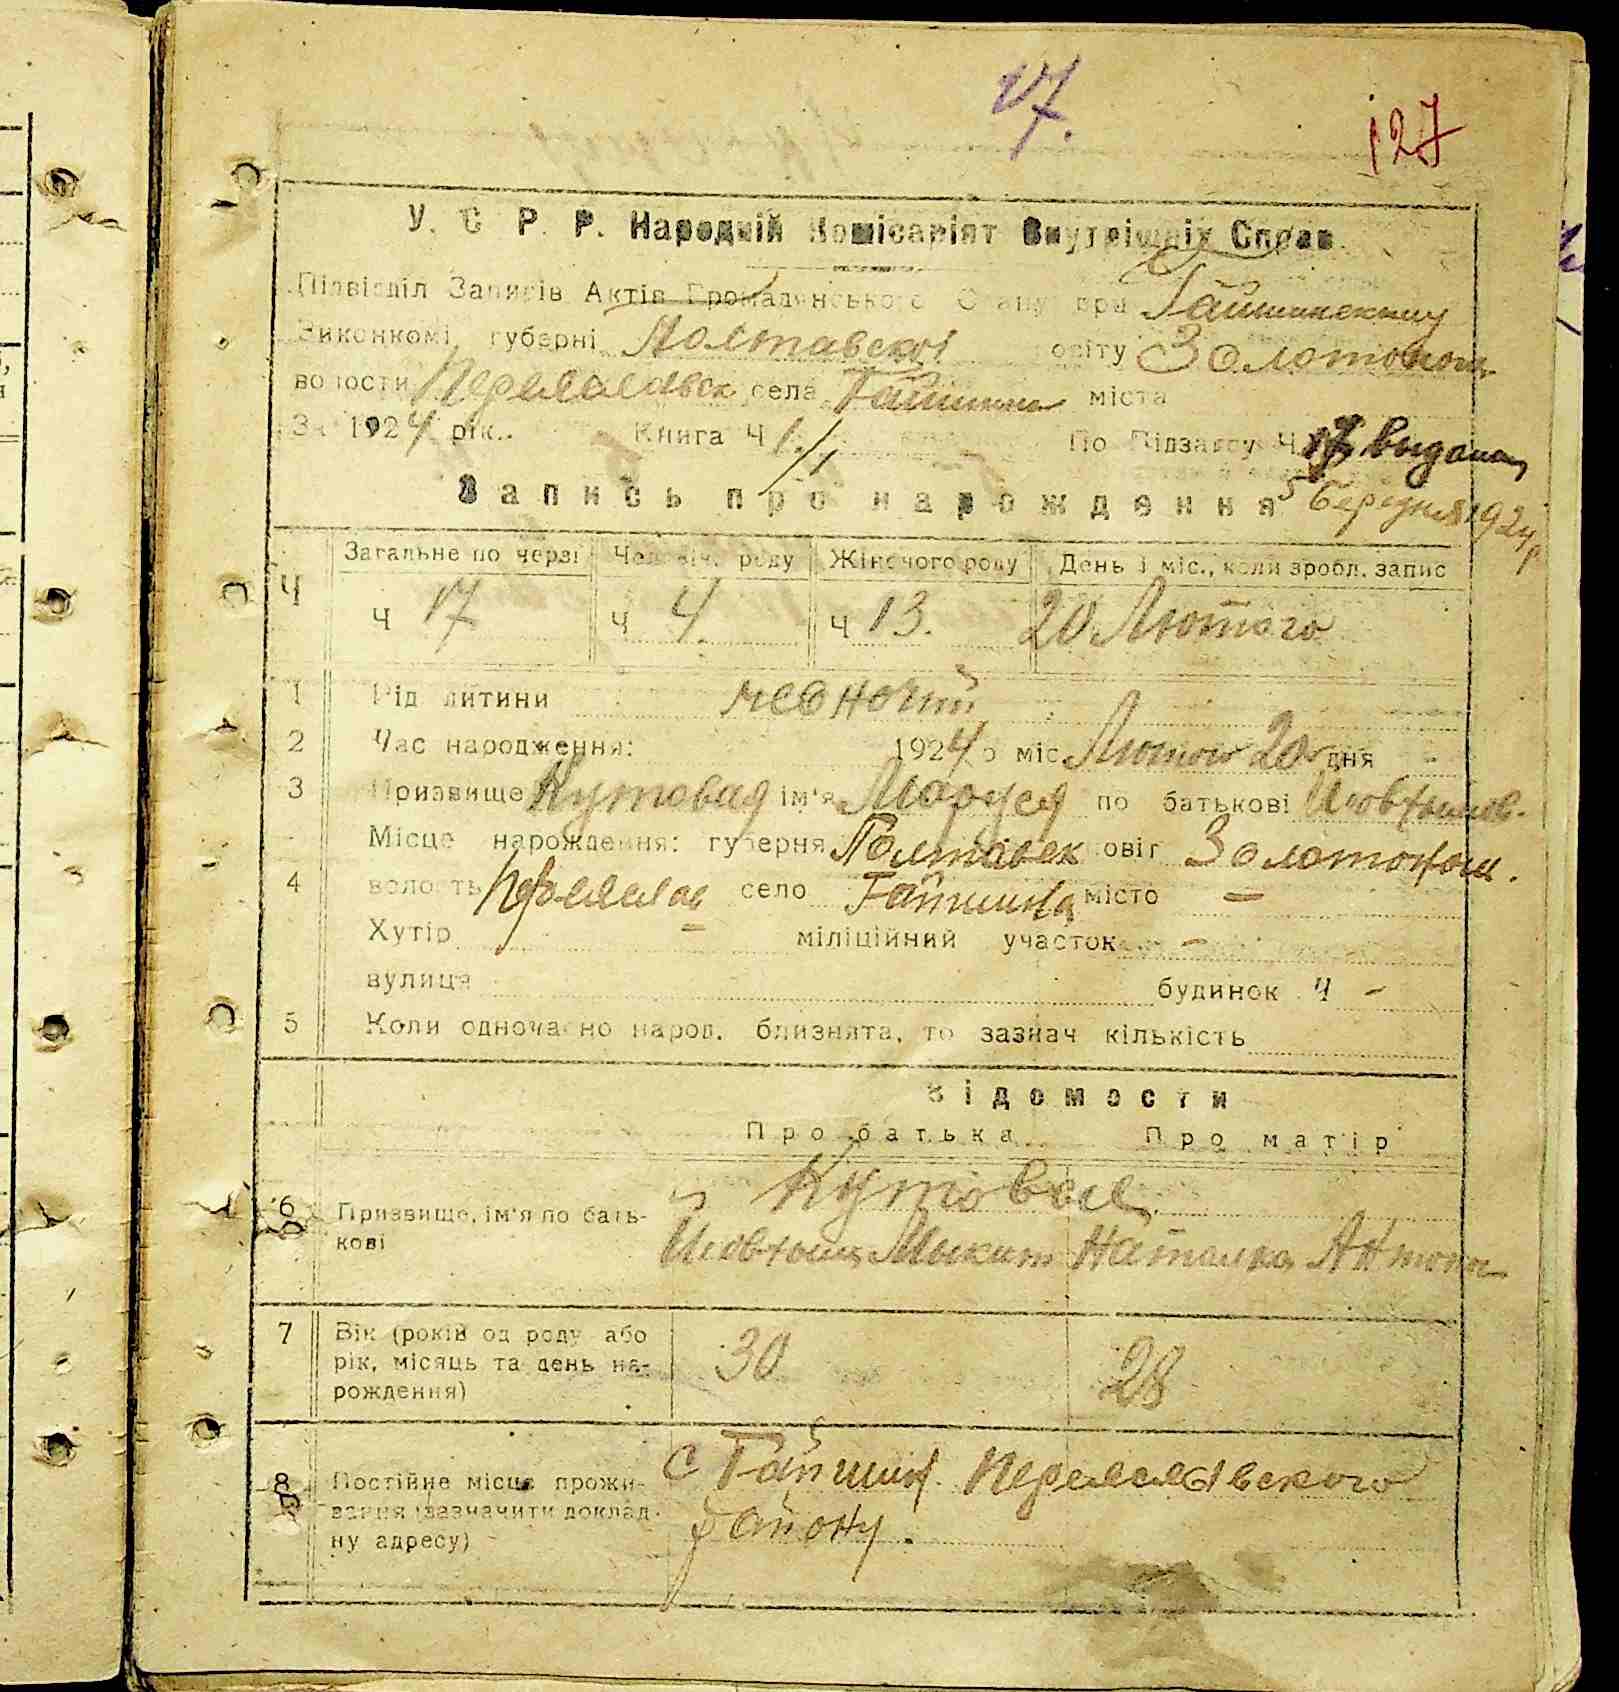 17.
127
У. С. Р. Р. Народній Комісаріят Внутрішніх Справ
Підвідділ Записів Актів Громадянського Стану при Гайшинскому
Виконкомі, губерні Полтавскої овіту Золотонош
волости Переяславск села Гайшина міста
За 1924 рік. Книга Ч 1/1 По Підзапсу Ч 17 выдана
Запись про нарождення 5 березня 1924 р
Ч Загальне по черзі Чоловіч. роду Жіночого роду День і міс., коли зробл. запис
Ч 17 Ч 4. Ч 13. 20 Лютого
1 Рід дитини жіночий
2 Час народження: 1924 р міс. Лютого 20 дня
3 Призвище Кутовая ім'я Маруся по батькові
Місце нарождення: губерня Полтавск овіт Золотонош.
4 волость Переяслав село Гайшина місто –
Хутір – міліційний участок –
вулиця будинок ч –
5 Коли одночасно народ. близнята, то зазнач кількість
Відомости
Про батька Про матір
Кутовые
6 Призвище, ім'я по бать-
кові Мыкит Наталка Антон
7 Вік (років од роду або
рік, місяць та день на-
рождення) 30 28
8 Постійне місце прожи-
вання (зазначити доклад-
ну адресу) с Гайшин. Переяславского
району.